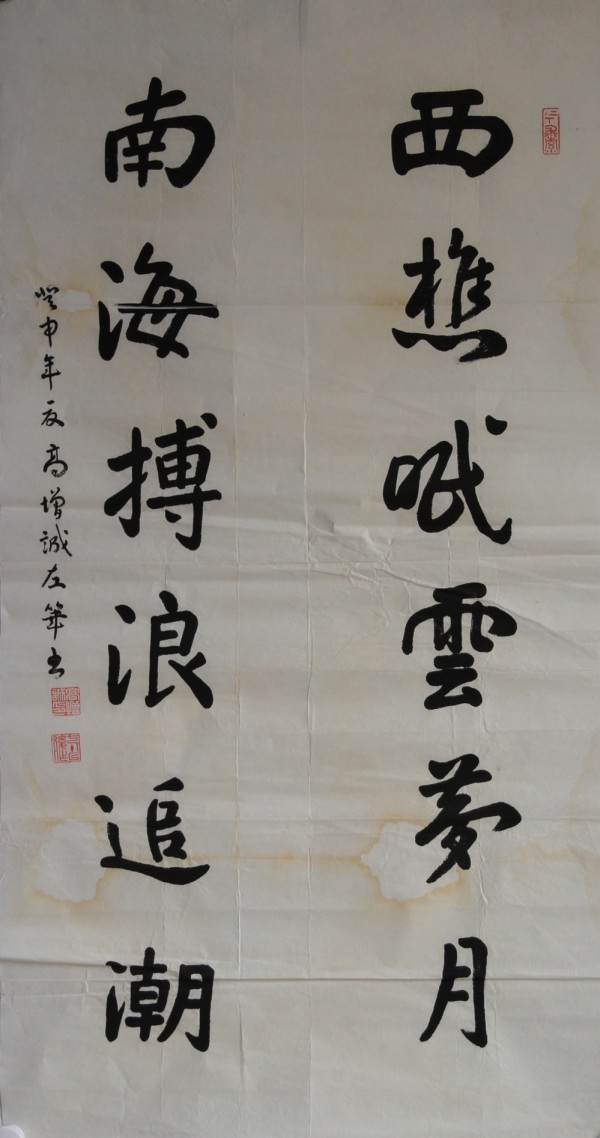 西樵眠雲夢月
南海搏浪追潮
申年夏高增誠左筆书